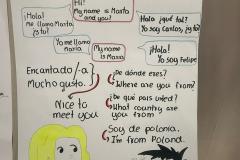 Hi!
My name is Marta
and you?
¡Hola!
Me llamo Marta
¿y tú?
¡Hola! ¿qué tal?
Yo soy Carlos, ¿y tú?
Yo me llamo
María
My name
is Maria
¡Hola!
Yo soy Felipe
Encantado/-a
Mucho gusto.
Nice to
meet you
¿De dónde eres?
Where are you from?
¿De qué país usted?
What country are
you from
Soy de polonia.
I'm from Poland.